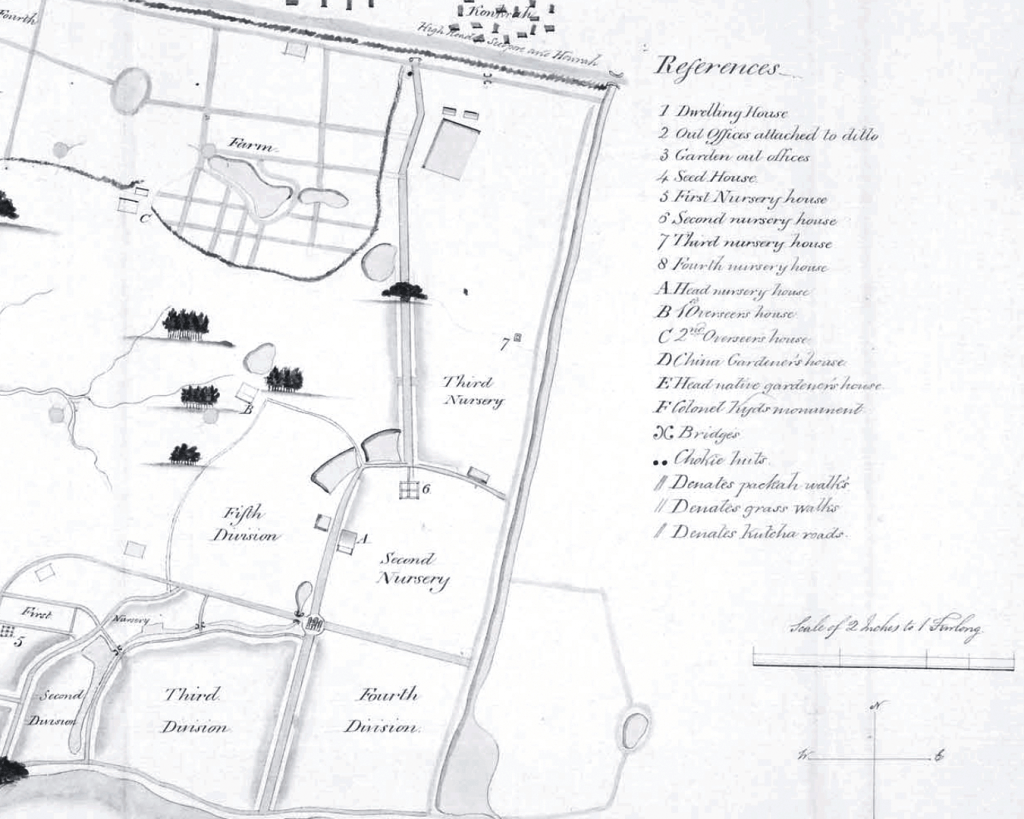 Fourth
Konkrah
High Road Seepore into Howrah
Farm
C
7
Third
Nursery
B
6
Fifth
Division
A
Second
Nursery
First
Nursery
5
Second
Division
Third
Division
Fourth
Division.
References
1 Dwelling House
2 Out Offices attached to ditto
3 Garden out offices
4 Seed House
5 First Nursery house
6 Second nursery house
7 Third nursery house
8 Fourth nursery house
A Head nursery house
B 1st Overseers house
C 2nd Overseers house
D China Gardener's house
E Head native gardener's house
F Colonel Kyds monument
Bridges
Chokie huts.
Denates packah walks
Denates grass walks
Denates kutcha roads.
Scale of 2 Inches to 1 Furlong
N
W E